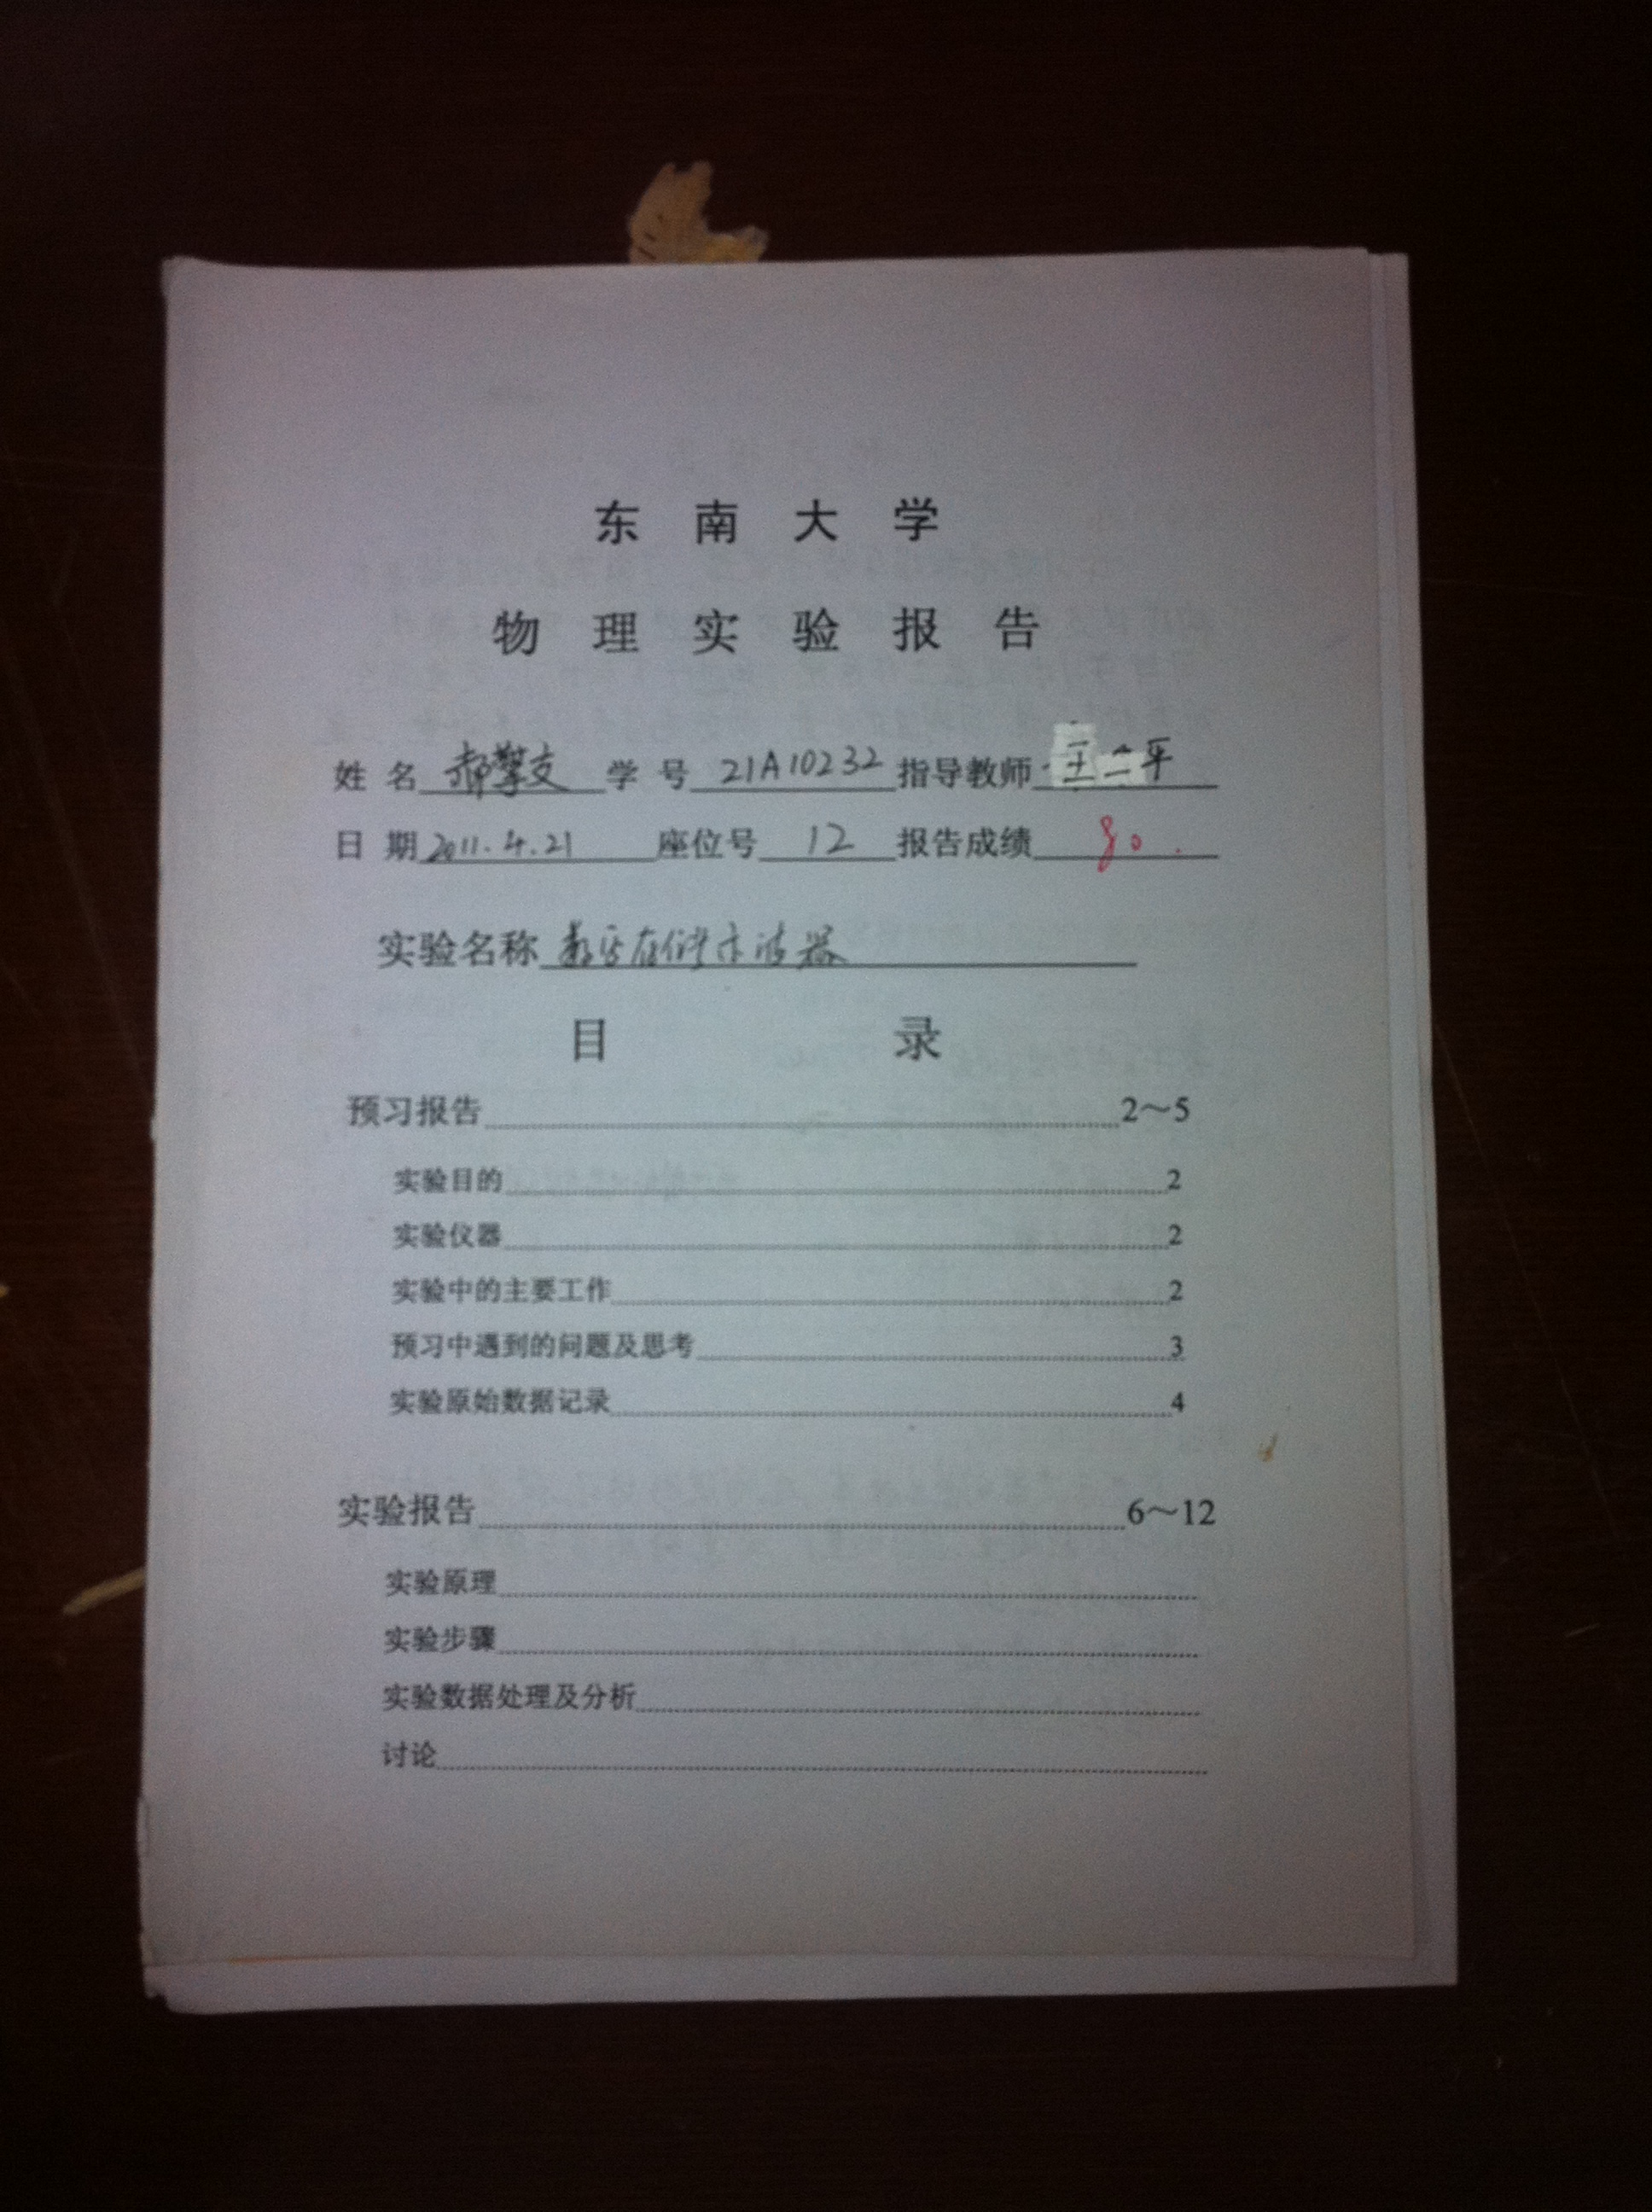 东南大学
物理实验报告
姓名 郝擎支 学号 21A10232 指导教师 王二平
日期 2011.4.21 座位号 12 报告成绩 80.
实验名称 数字存储示波器
目录
预习报告 2～5
实验目的 2
实验仪器 2
实验中的主要工作 2
预习中遇到的问题及思考 3
实验原始数据记录 4
实验报告 6～12
实验原理
实验步骤
实验数据处理及分析
讨论